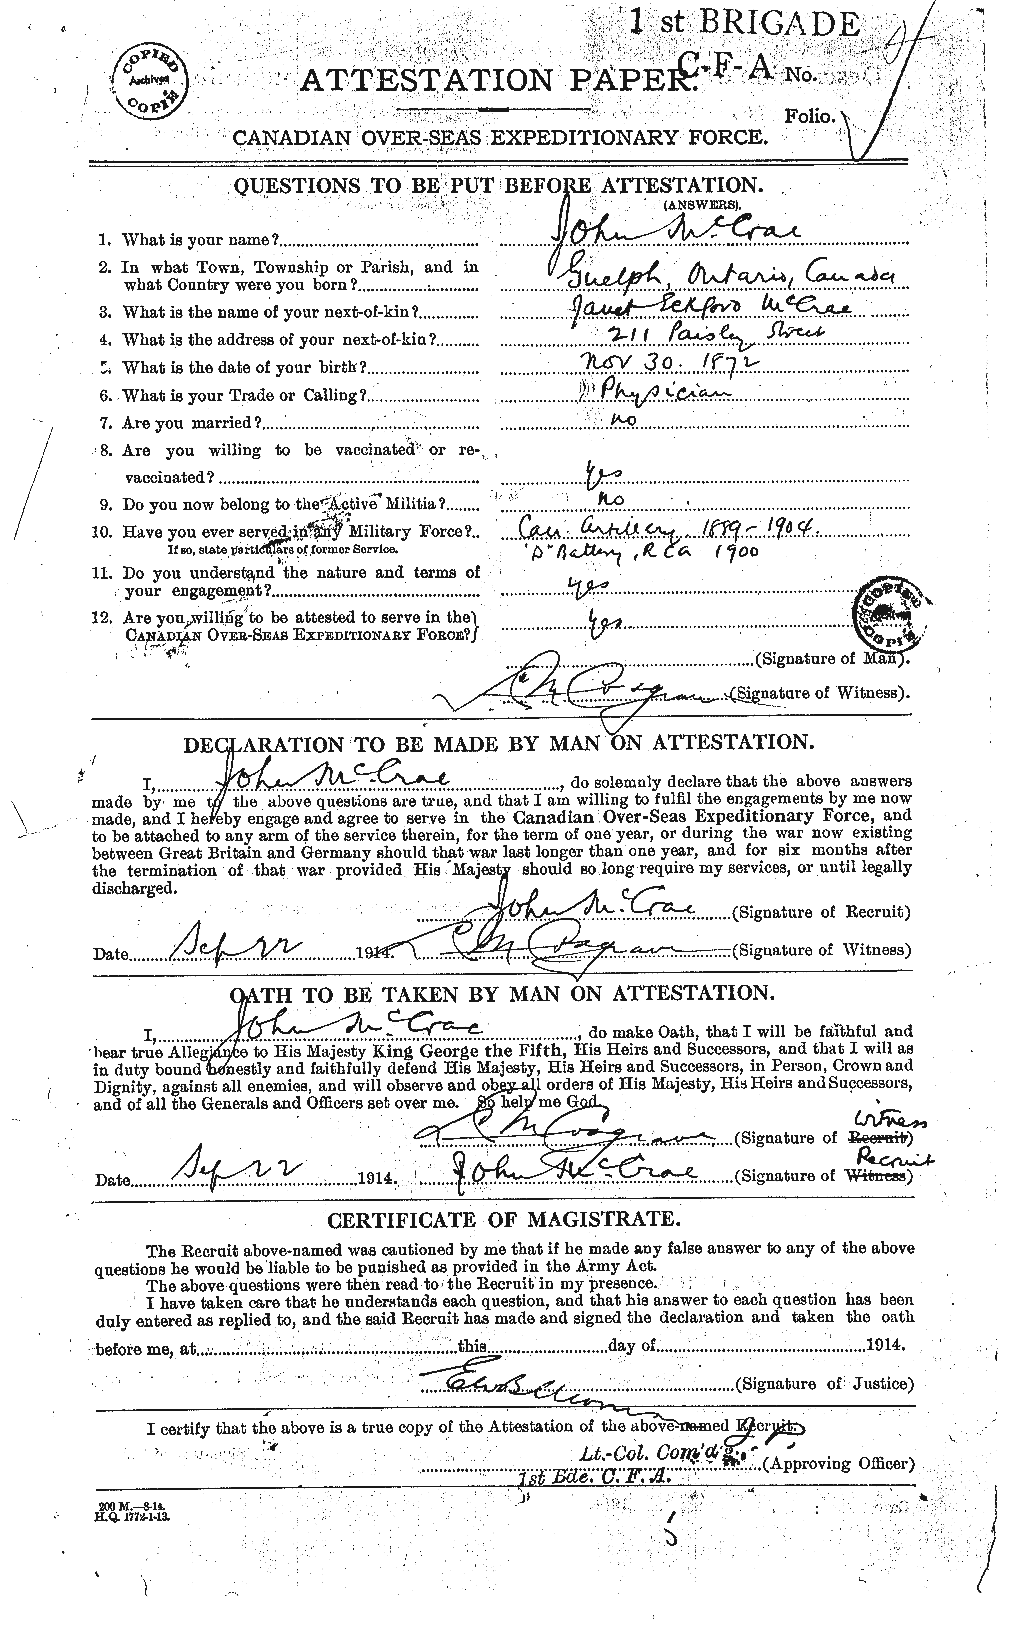 1 st BRIGADE
C-F-A
COPIED
Archives
COPIÉ
ATTESTATION PAPER.
No.
Folio.
CANADIAN OVER-SEAS EXPEDITIONARY FORCE.
QUESTIONS TO BE PUT BEFORE ATTESTATION.
(ANSWERS).
1. What is your name? John McCrae
2. In what Town, Township or Parish, and in
what Country were you born? Guelph, Ontario, Canada
3. What is the name of your next-of-kin? Janet Eckford McCrae
4. What is the address of your next-of-kin? 211 Paisley Street
5. What is the date of your birth? Nov 30. 1872
6. What is your Trade or Calling? Physician
7. Are you married? no
8. Are you willing to be vaccinated or re-
vaccinated? yes
9. Do you now belong to the Active Militia? no
10. Have you ever served in any Military Force? Can. Artillery 1889-1904.
If so, state particulars of former Service. "D" Battery, RCA 1900
11. Do you understand the nature and terms of
your engagement? yes
12. Are you willing to be attested to serve in the
CANADIAN OVER-SEAS EXPEDITIONARY FORCE? yes
COPIED
COPIÉ
(Signature of Man).
C M Cosgrave (Signature of Witness).
DECLARATION TO BE MADE BY MAN ON ATTESTATION.
I, John McCrae, do solemnly declare that the above answers
made by me to the above questions are true, and that I am willing to fulfil the engagements by me now
made, and I hereby engage and agree to serve in the Canadian Over-Seas Expeditionary Force, and
to be attached to any arm of the service therein, for the term of one year, or during the war now existing
between Great Britain and Germany should that war last longer than one year, and for six months after
the termination of that war provided His Majesty should so long require my services, or until legally
discharged.
John McCrae (Signature of Recruit)
Date Sep 22 1914. C M Cosgrave (Signature of Witness)
OATH TO BE TAKEN BY MAN ON ATTESTATION.
I, John McCrae, do make Oath, that I will be faithful and
bear true Allegiance to His Majesty King George the Fifth, His Heirs and Successors, and that I will as
in duty bound honestly and faithfully defend His Majesty, His Heirs and Successors, in Person, Crown and
Dignity, against all enemies, and will observe and obey all orders of His Majesty, His Heirs and Successors,
and of all the Generals and Officers set over me. So help me God.
Witness
C M Cosgrave (Signature of Recruit)
Recruit
Date Sep 22 1914. John McCrae (Signature of Witness)
CERTIFICATE OF MAGISTRATE.
The Recruit above-named was cautioned by me that if he made any false answer to any of the above
questions he would be liable to be punished as provided in the Army Act.
The above questions were then read to the Recruit in my presence.
I have taken care that he understands each question, and that his answer to each question has been
duly entered as replied to, and the said Recruit has made and signed the declaration and taken the oath
before me, at this day of 1914.
(Signature of Justice)
I certify that the above is a true copy of the Attestation of the above-named Recruit.
Lt.-Col. Com'd'g.
1st Bde. C. F. A. (Approving Officer)
200 M.—8-14.
H.Q. 1772-1-13.